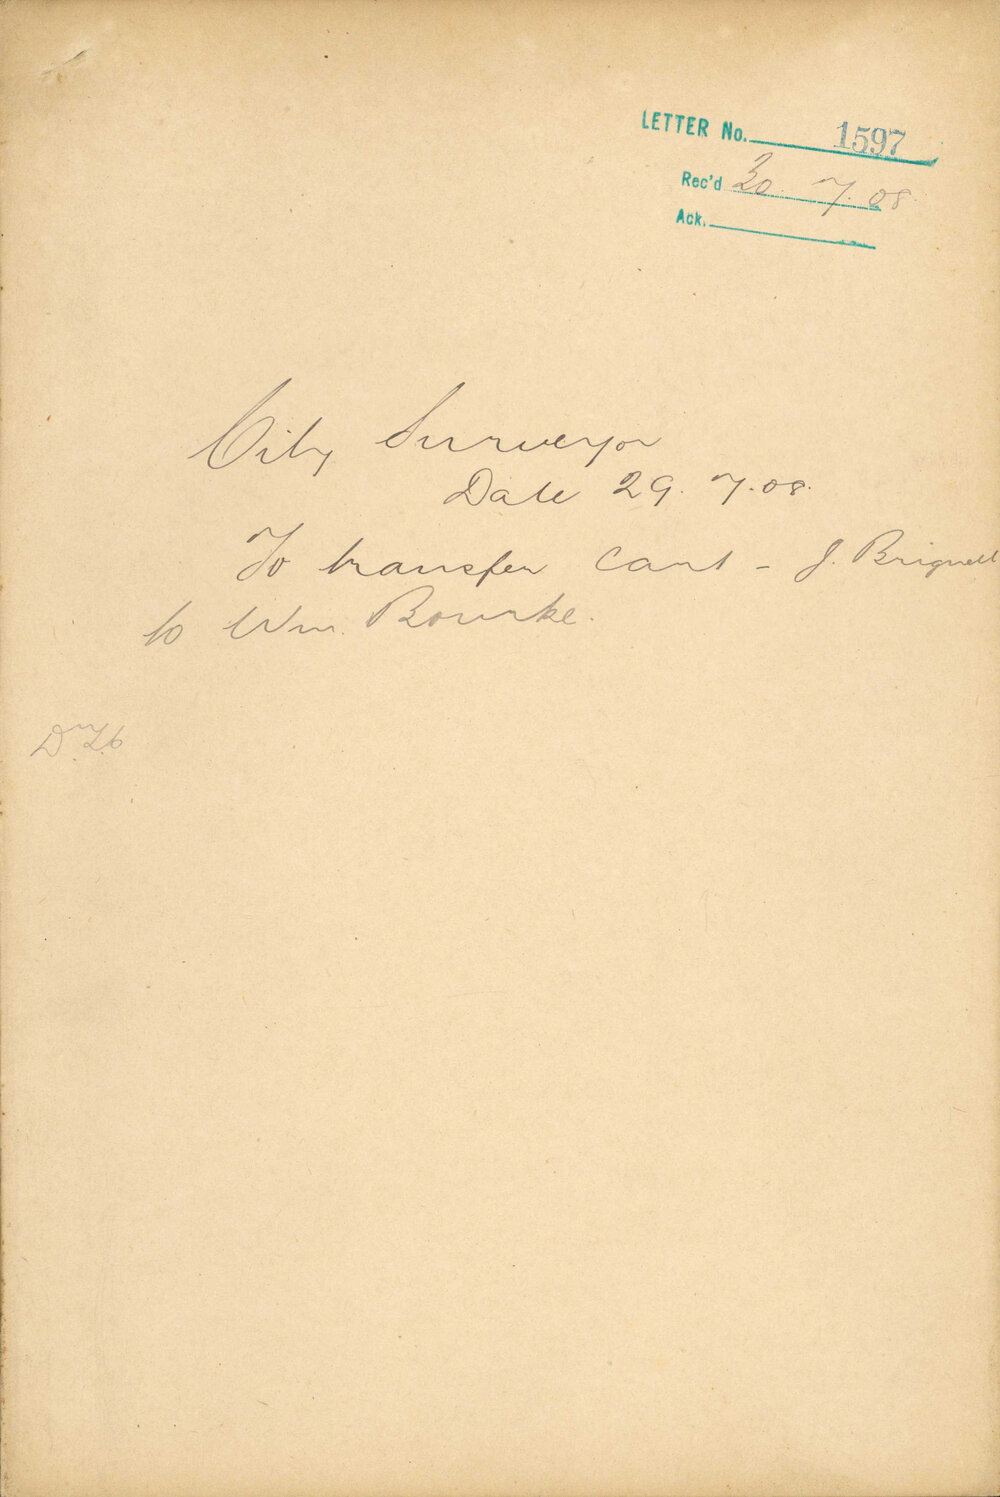 LETTER No. 1597
Rec'd 30. 7. 08
Ack.
City Surveyor
Date 29. 7. 08.
To transfer cart - J. Brignell
to Wm. Bourke.